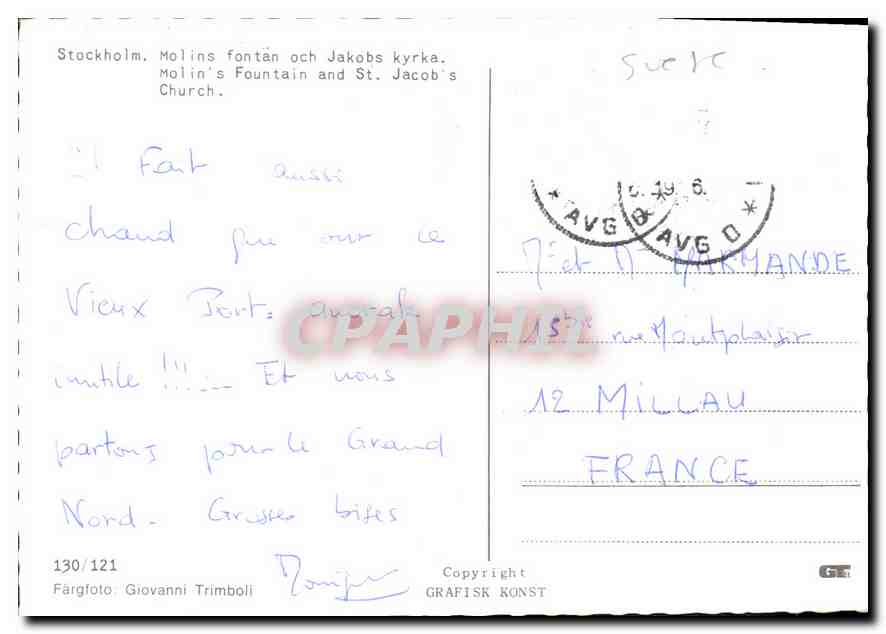 Stockholm. Molins fontän och Jakobs kyrka.
Molin's Fountain and St. Jacob's
Church.
Fait aussi
chaud que sur le
Vieux Port: anorak
inutile !!! ... Et nous
partons pour le Grand
Nord. Grosses bises
Monique
130/121
Färgfoto: Giovanni Trimboli
Copyright
GRAFISK KONST
Suede
* AVG D *
AVG D *
Mr et Mme MARMANDE
15 bis rue Montplaisir
12 MILLAU
FRANCE
CPAPHIL